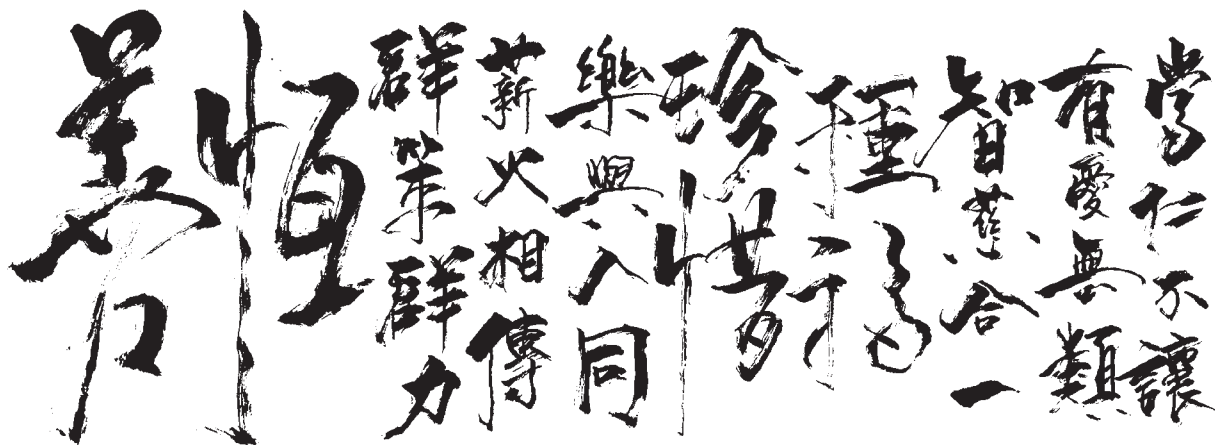 當仁不讓
有愛無類
智慈合一
種福
珍惜
樂與人同
薪火相傳
群策群力
恆